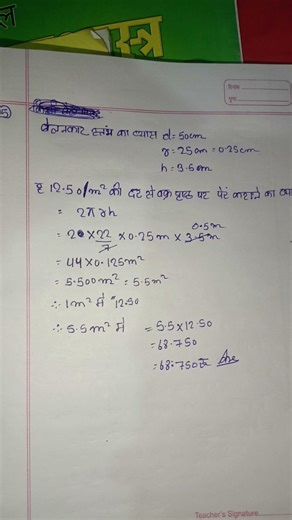 स्त्र
दिनांक
पृष्ठ
5)
बेलनाकार स्तंभ का व्यास d = 50cm
r = 25cm = 0.25cm
h = 3.5cm
₹ 12.50/m² की दर से वक्र पृष्ठ पर पेंट कराने का व्यय
= 2πrh
0.5m
= 2 × 22/7 × 0.25m × 3.5m
= 44 × 0.125m²
= 5.500m² = 5.5m²
∴ 1m² में 12.50
∴ 5.5m² में = 5.5 × 12.50
= 68.750
= 68.750 रु Ans
Teacher's Signature